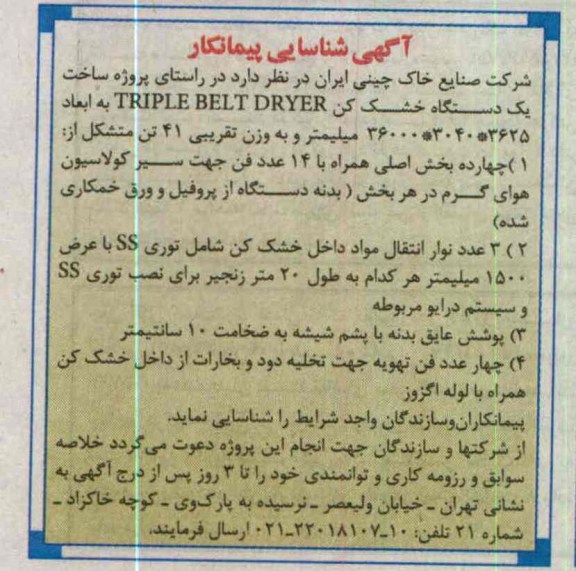 آگهی شناسایی پیمانکار
شرکت صنایع خاک چینی ایران در نظر دارد در راستای پروژه ساخت
یک دستگاه خشک کن TRIPLE BELT DRYER به ابعاد
۳۶۲۵*۳۰۴۰*۳۶۰۰۰ میلیمتر و به وزن تقریبی ۴۱ تن متشکل از:
۱)چهارده بخش اصلی همراه با ۱۴ عدد فن جهت سیر کولاسیون
هوای گرم در هر بخش ( بدنه دستگاه از پروفیل و ورق خمکاری
شده)
۲) ۳ عدد نوار انتقال مواد داخل خشک کن شامل توری SS با عرض
۱۵۰۰ میلیمتر هر کدام به طول ۲۰ متر زنجیر برای نصب توری SS
و سیستم درایو مربوطه
۳) پوشش عایق بدنه با پشم شیشه به ضخامت ۱۰ سانتیمتر
۴) چهار عدد فن تهویه جهت تخلیه دود و بخارات از داخل خشک کن
همراه با لوله اگزوز
پیمانکاران‌وسازندگان واجد شرایط را شناسایی نماید.
از شرکتها و سازندگان جهت انجام این پروژه دعوت می‌گردد خلاصه
سوابق و رزومه کاری و توانمندی خود را تا ۳ روز پس از درج آگهی به
نشانی تهران ـ خیابان ولیعصر ـ نرسیده به پارک‌وی ـ کوچه خاکزاد ـ
شماره ۲۱ تلفن: ۱۰ـ۲۲۰۱۸۱۰۷ـ۰۲۱ ارسال فرمایند.